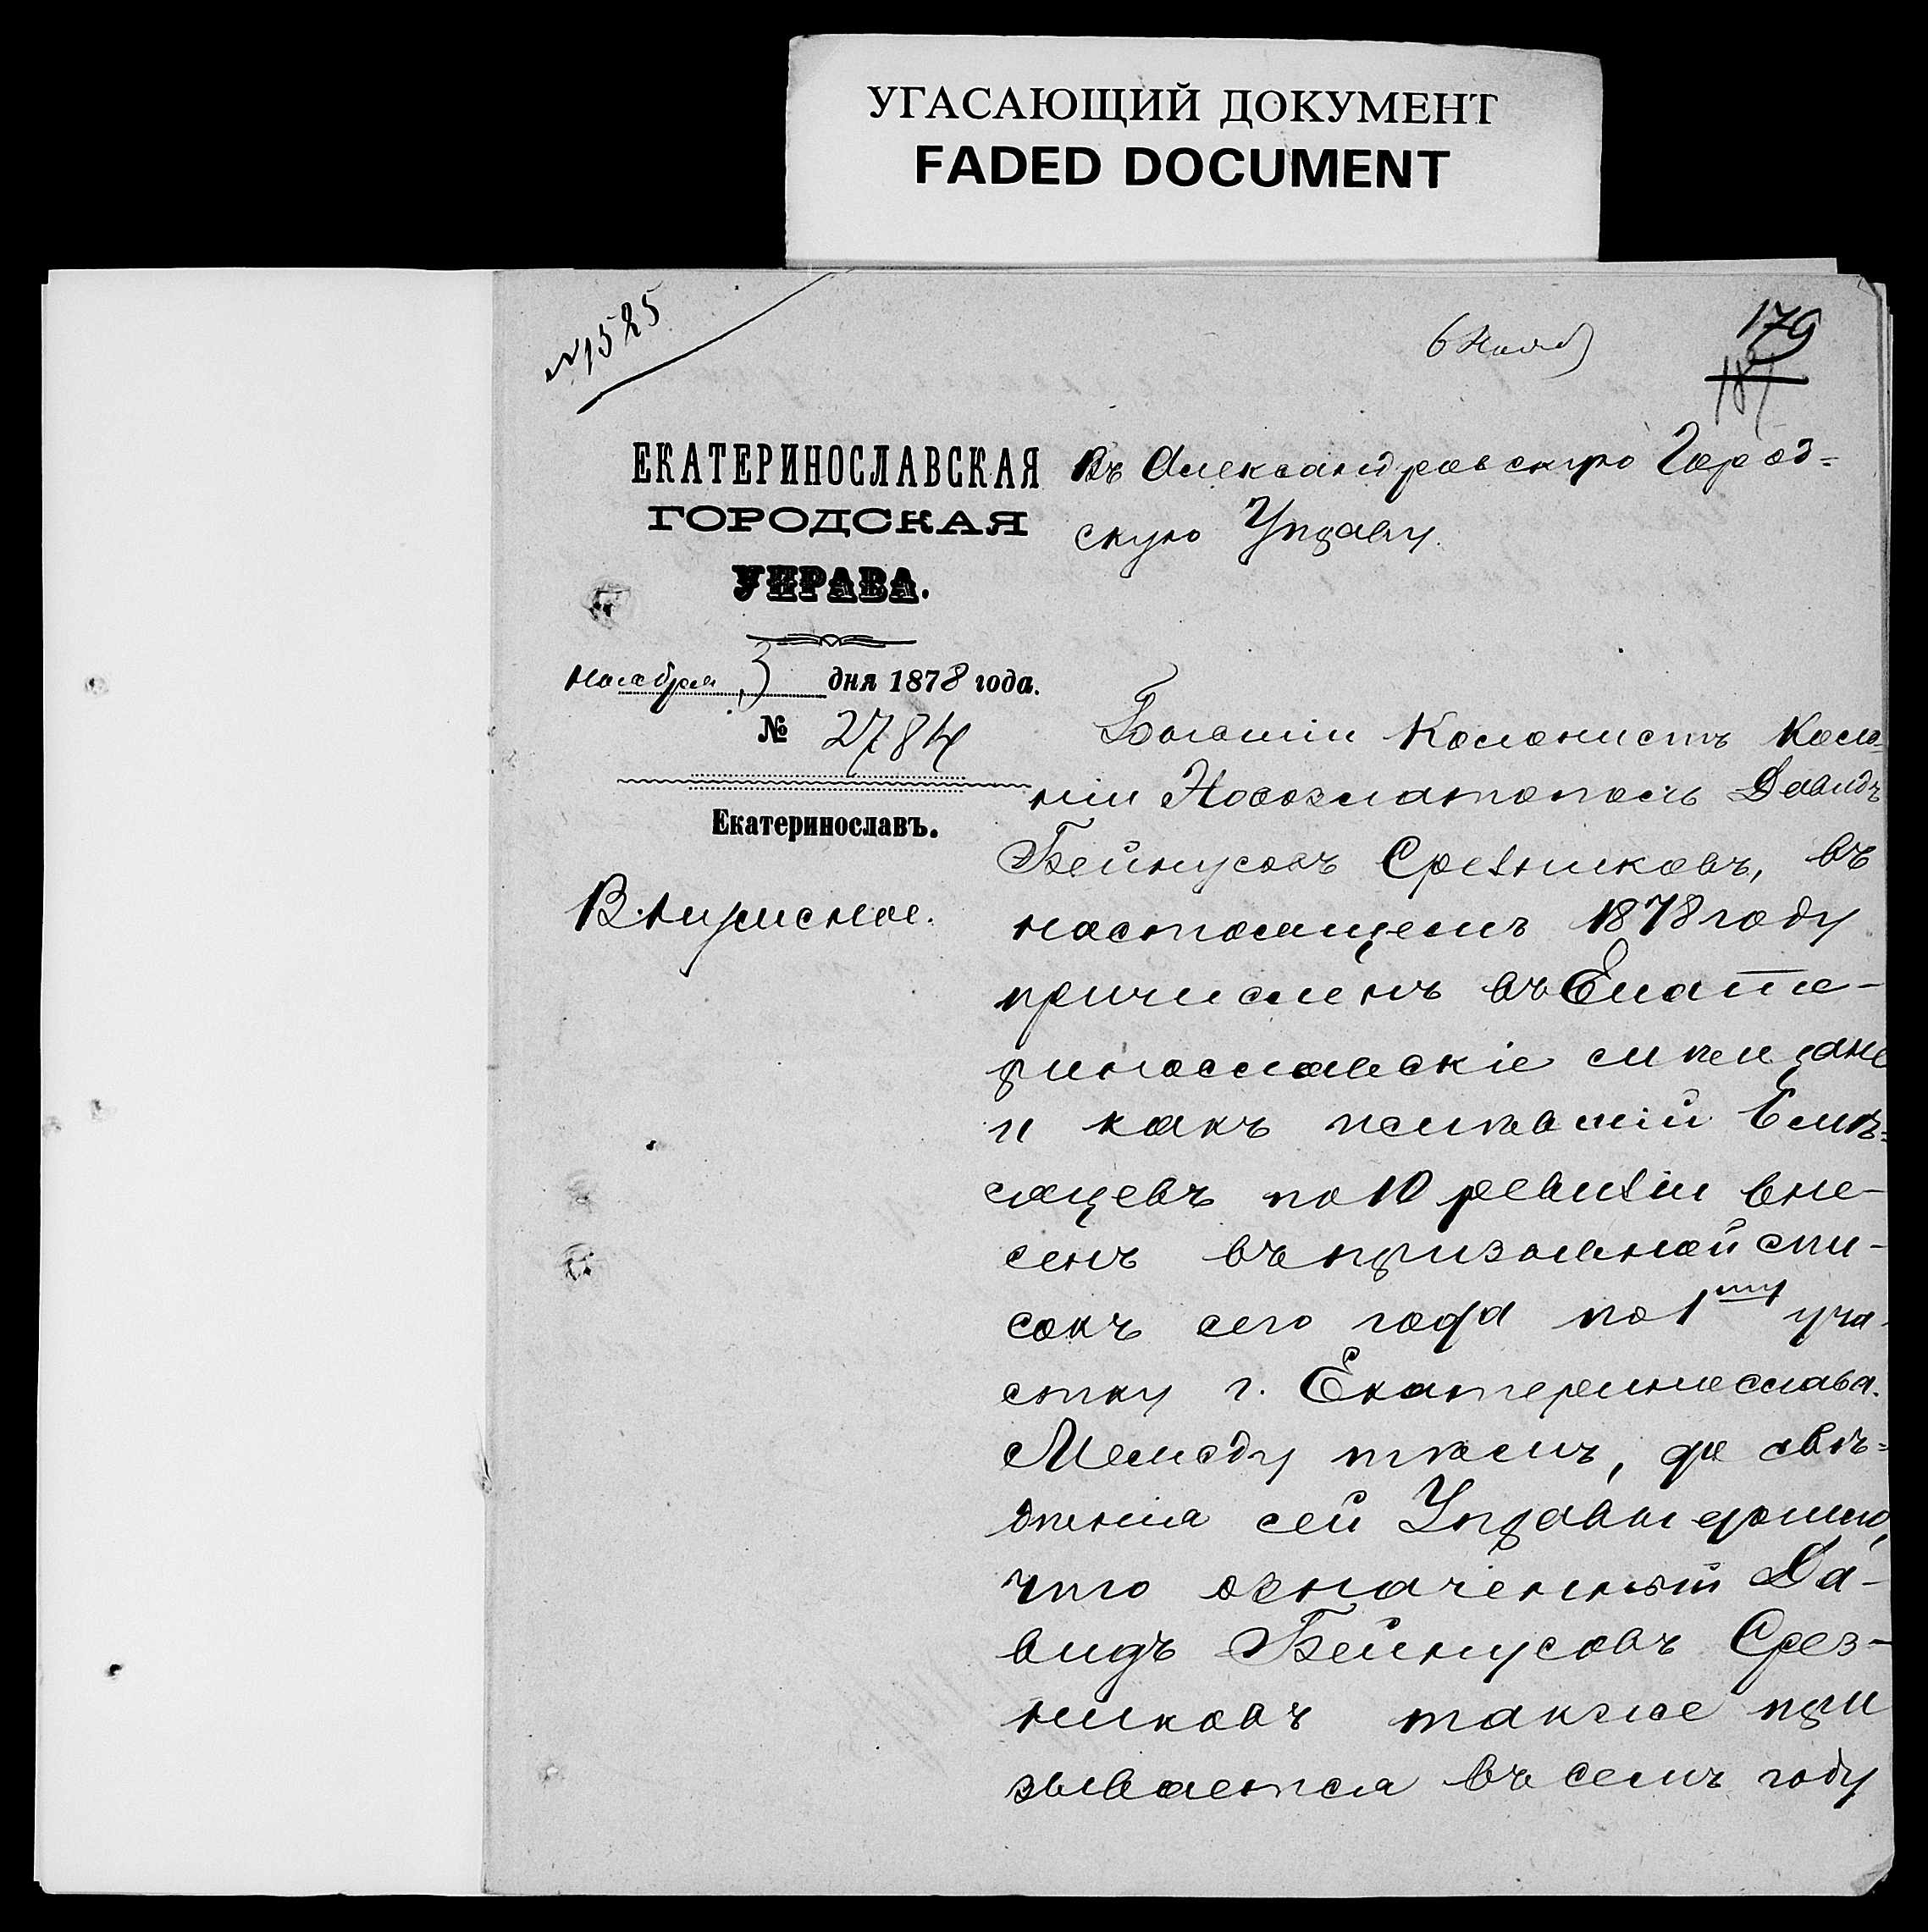 УГАСАЮЩИЙ ДОКУМЕНТ
FADED DOCUMENT
№1525
6 Нояб
179
187
ЕКАТЕРИНОСЛАВСКАЯ
ГОРОДСКАЯ
УПРАВА.
Ноября 3 дня 1878 года.
№ 2784
Екатеринославъ.
Въ Александровскую Город=
скую Управу.
Бывшій Колонистъ Коло-
ніи Новозлатополь Давидъ
Бейнусовъ Срезниковъ, въ
настоящемъ 1878 году
причисленъ въ Екате-
ринославскіе мѣщане
и какъ неимѣвшій 6 мѣ=
сяцевъ по 10 ревизіи вне-
сенъ въ призывной спи-
сокъ сего года по 1му уча-
стку г. Екатеринослава.
Между тѣмъ, до свѣ=
дѣнія сей Управы дошло,
что означенный Да-
видъ Бейнусовъ Срез-
никовъ также при
зывается въ семъ году